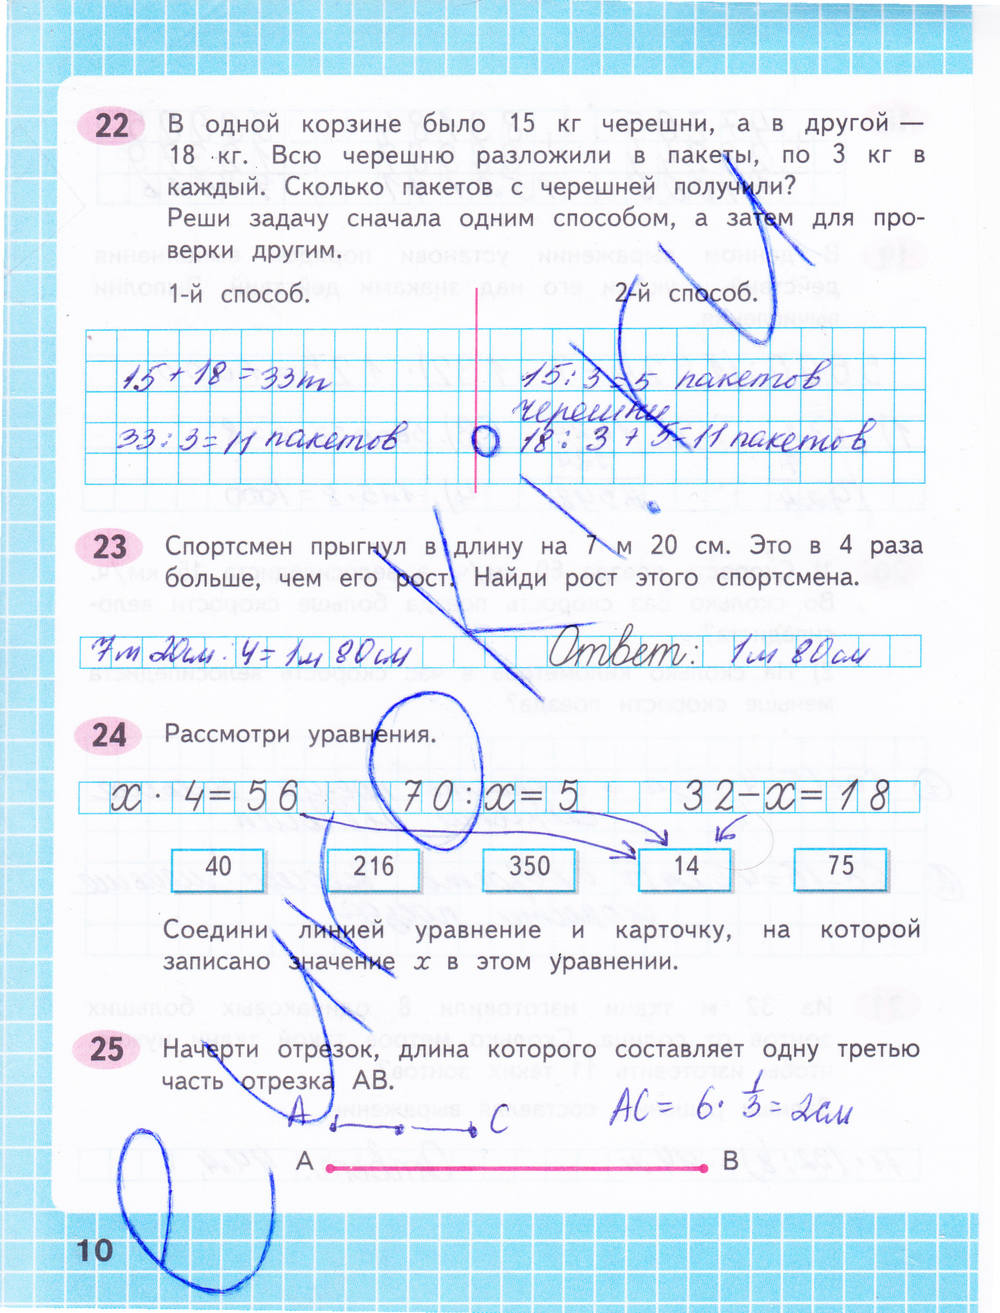 22 В одной корзине было 15 кг черешни, а в другой –
18 кг. Всю черешню разложили в пакеты, по 3 кг в
каждый. Сколько пакетов с черешней получили?
Реши задачу сначала одним способом, а затем для про-
верки другим.
1-й способ. 2-й способ.
15 + 18 = 33т 15 : 3 = 5 пакетов
черешни
33 : 3 = 11 пакетов 18 : 3 + 5 = 11 пакетов
23 Спортсмен прыгнул в длину на 7 м 20 см. Это в 4 раза
больше, чем его рост. Найди рост этого спортсмена.
7м 20см : 4 = 1м 80см Ответ: 1м 80см
24 Рассмотри уравнения.
x · 4 = 56 70 : x = 5 32 – x = 18
40 216 350 14 75
Соедини линией уравнение и карточку, на которой
записано значение x в этом уравнении.
25 Начерти отрезок, длина которого составляет одну третью
часть отрезка АВ.
А С АС = 6 · 1/3 = 2см
А В
10